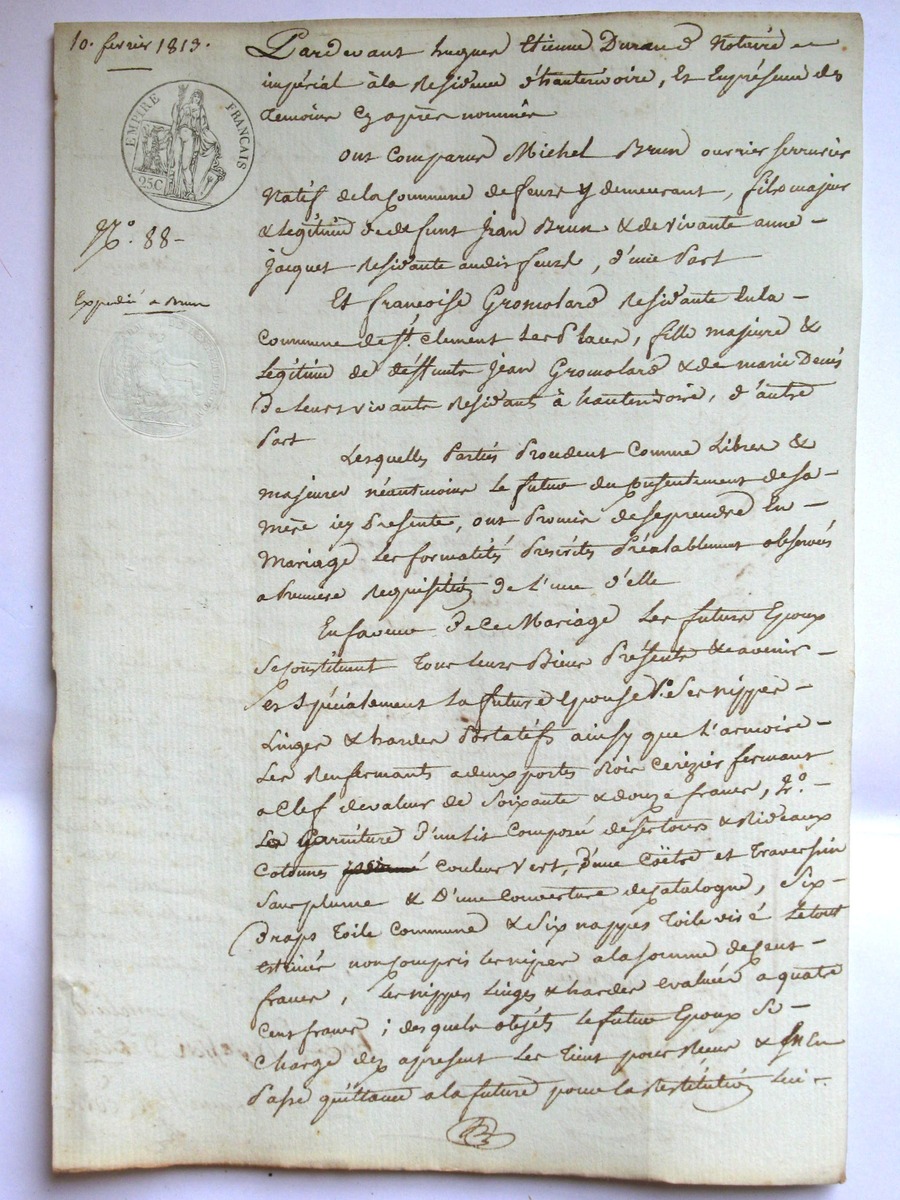 10. fevrier 1813.
EMPIRE FRANÇAIS
25C
N.o 88-
Expedié a Brun
Pardevant hugues Etienne Durand Notaire
impérial à la Residence d'hauterivoire, Et En présence des
temoins Cy après nommés
Ont Comparus Michel Brun ouvrier serrurier
Natif de la Commune de feurs y demeurant, fils majeur
& légitime de defunt Jean Brun & de vivante anne-
Jacquet Residante audit feurs, d'une Part
Et francoise Gromolard Residante En la-
Commune de St. Clement Les Places, fille majeure &
Légitime de deffunts Jean Gromolard & de marie Denis
De Leurs vivants Residants à hauterivoire, d'autre
Part
Lesquelles Parties Procedent Comme Libres &
majeures néantmoins Le futur du Consentement de sa-
mère icy Presente, ont Promis de se prendre En-
Mariage Les formalités Prescrites Préalablement observées
a Premiere Requisition de L'une d'elle
En faveur de Ce Mariage Les futurs Epoux
Se Constituent Tous Leurs Biens Présents & avenir-
Et Spécialement La future Epouse 1.o Ses nippes-
Linges & hardes Portatifs ainsy que L'armoire-
Les Renfermants a deux portes Bois Cerizier fermant
a Clef de valeur de Soixante & douze francs, 2.o-
La Garniture D'un Lit Composé de Ses tours & Rideaux
Cotonnes Couleur Vert, D'une Coëtre et Traversin
Sans plume & D'une Couverture de Catalogne, Six-
Draps Toile Commune & Six nappes Toile Le tout
Estimés non Compris Les nipes a la Somme de Cent-
francs, Les nippes Linges & hardes evaluées a quatre
Cent francs; desquels objets Le futur Epoux Se-
Charge dez apresent Les Tient pour Reçus & En
Passe quittance a la future pour La Restitution Lui-